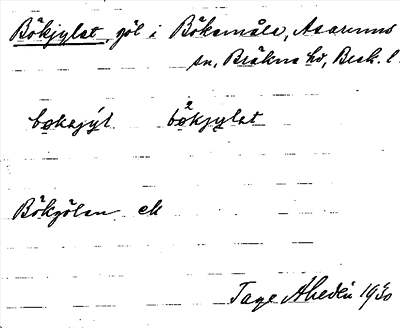 Bökjylet, göl i Bökemåla, Asarums
sn, Bräkne hd, Blek. l.
bøkajýl bøkjylet
2
Bökgölen ek
Tage Ahldén 1930